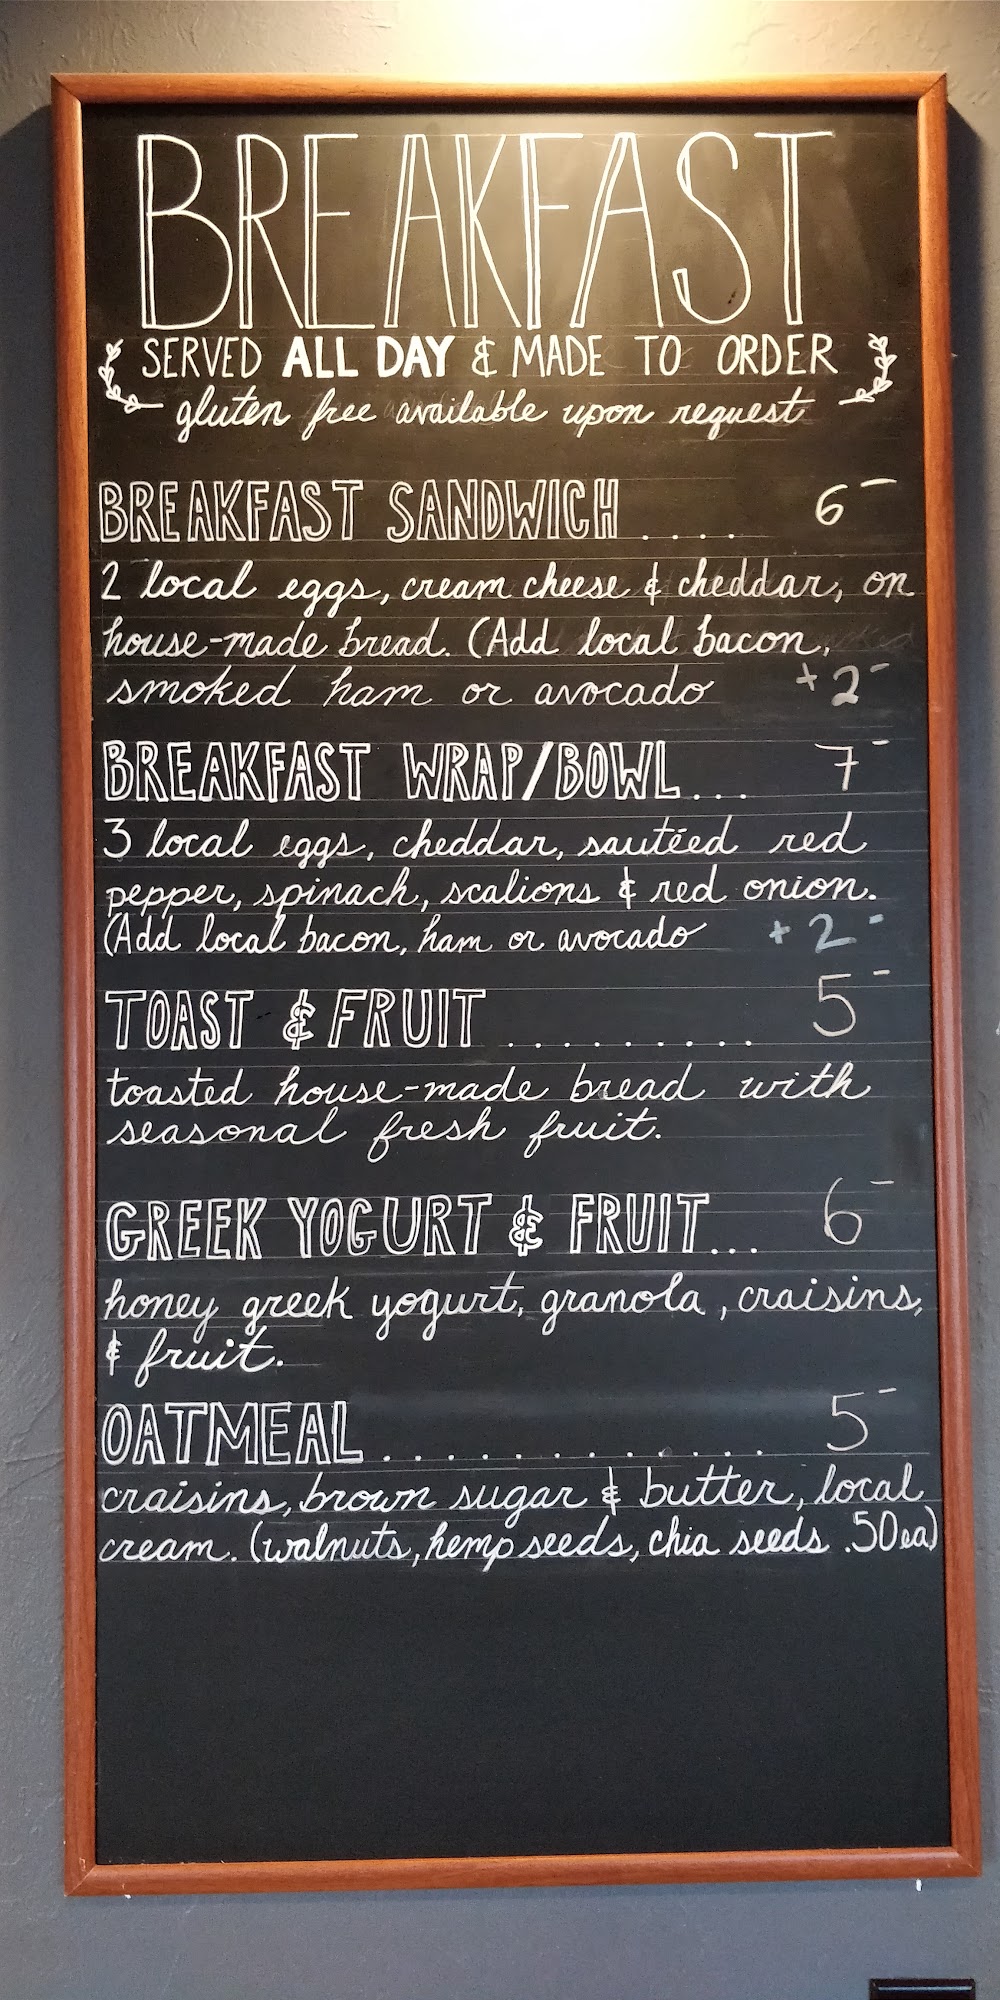 BREAKFAST
SERVED ALL DAY & MADE TO ORDER
gluten free available upon request
BREAKFAST SANDWICH .... 6-
2 local eggs, cream cheese & cheddar, on
house-made bread. (Add local bacon,
smoked ham or avocado +2-
BREAKFAST WRAP/BOWL... 7-
3 local eggs, cheddar, sautéed red
pepper, spinach, scalions & red onion.
(Add local bacon, ham or avocado +2-
TOAST & FRUIT ......... 5-
toasted house-made bread with
seasonal fresh fruit.
GREEK YOGURT & FRUIT... 6-
honey greek yogurt, granola, craisins,
& fruit.
OATMEAL ............. 5-
craisins, brown sugar & butter, local
cream. (walnuts, hemp seeds, chia seeds .50ea)